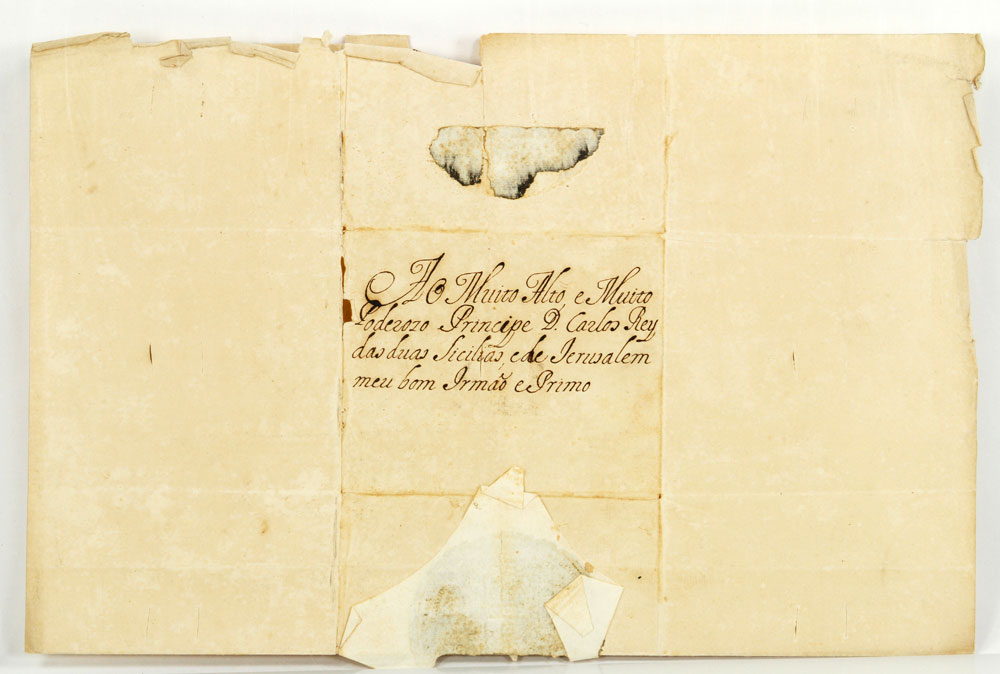 Ao Muito Alto, e Muito
Poderozo Principe D. Carlos Rey
das duas Sicilias, e de Jerusalem
meu bom Irmão e Primo